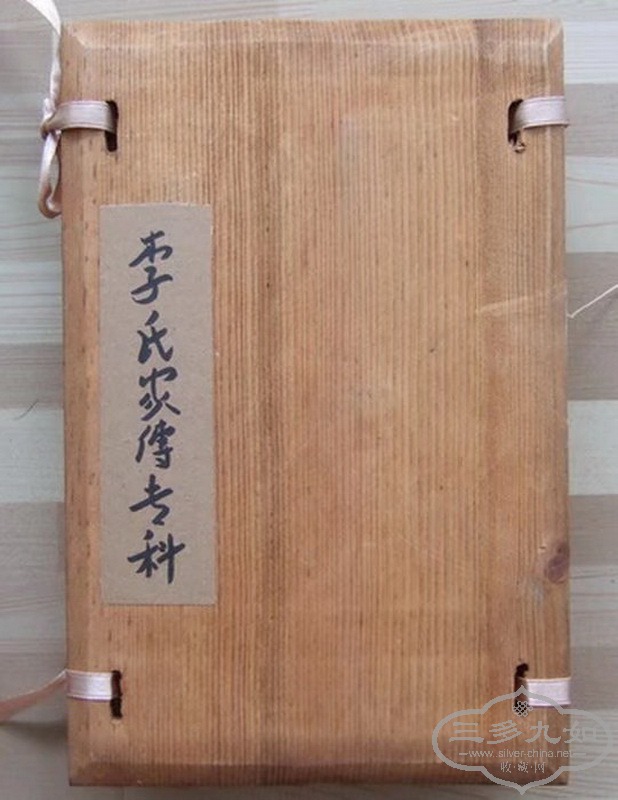 李氏家傳专科
三多九如
www.silver-china.net
收·藏·网